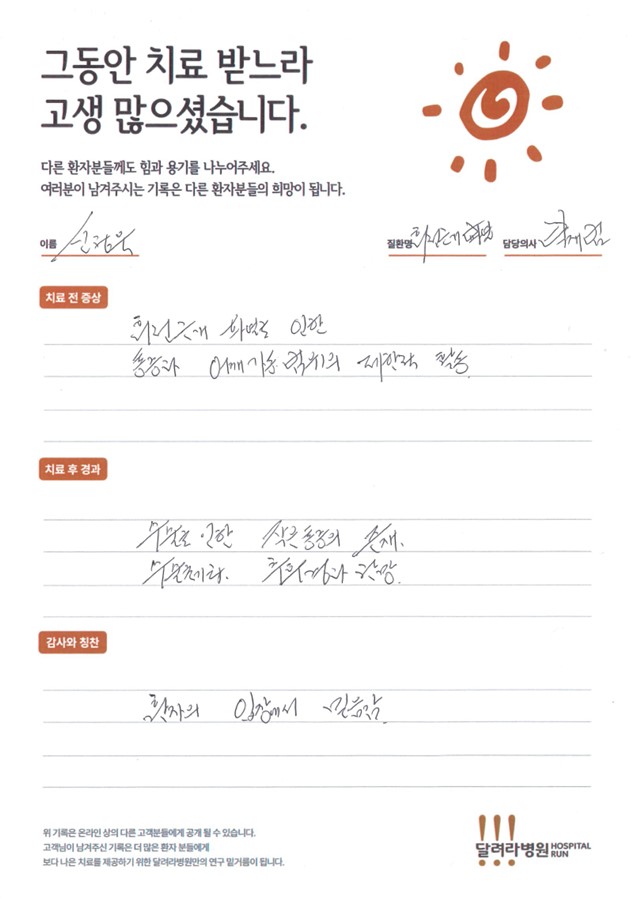 그동안 치료 받느라
고생 많으셨습니다.
다른 환자분들께도 힘과 용기를 나누어주세요.
여러분이 남겨주시는 기록은 다른 환자분들의 희망이 됩니다.
이름 질환명 회전근개 파열 담당의사
치료 전 증상
회전근개 파열로 인한
통증과 어깨가동 범위의 제한적 활동.
치료 후 경과
수술로 인한 작은 통증의 존재.
수술초기라. 추후경과 관망.
감사와 칭찬
환자의 입장에서 믿음감.
위 기록은 온라인 상의 다른 고객분들에게 공개 될 수 있습니다.
고객님이 남겨주신 기록은 더 많은 환자 분들에게
보다 나은 치료를 제공하기 위한 달려라병원만의 연구 밑거름이 됩니다.
달려라병원 HOSPITAL RUN